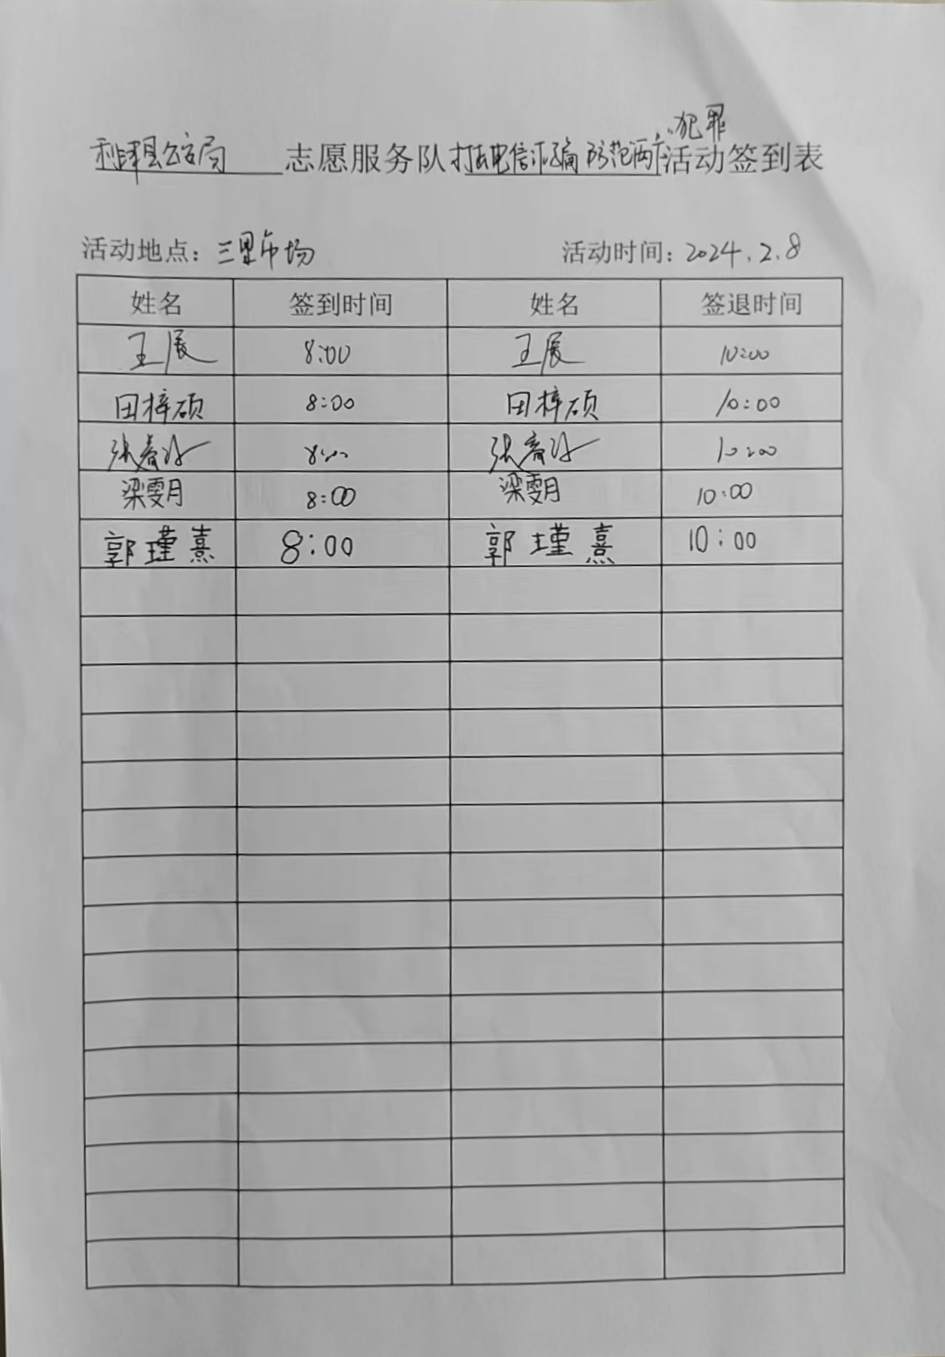 利津县公安局 志愿服务队打击电信诈骗 防范两卡犯罪活动签到表
活动地点：三里市场 活动时间：2024.2.8
姓名 签到时间 姓名 签退时间
王展 8:00 王展 10:00
田梓硕 8:00 田梓硕 10:00
张春 8:00 张春 10:00
梁雯月 8:00 梁雯月 10:00
郭瑾熹 8:00 郭瑾熹 10:00